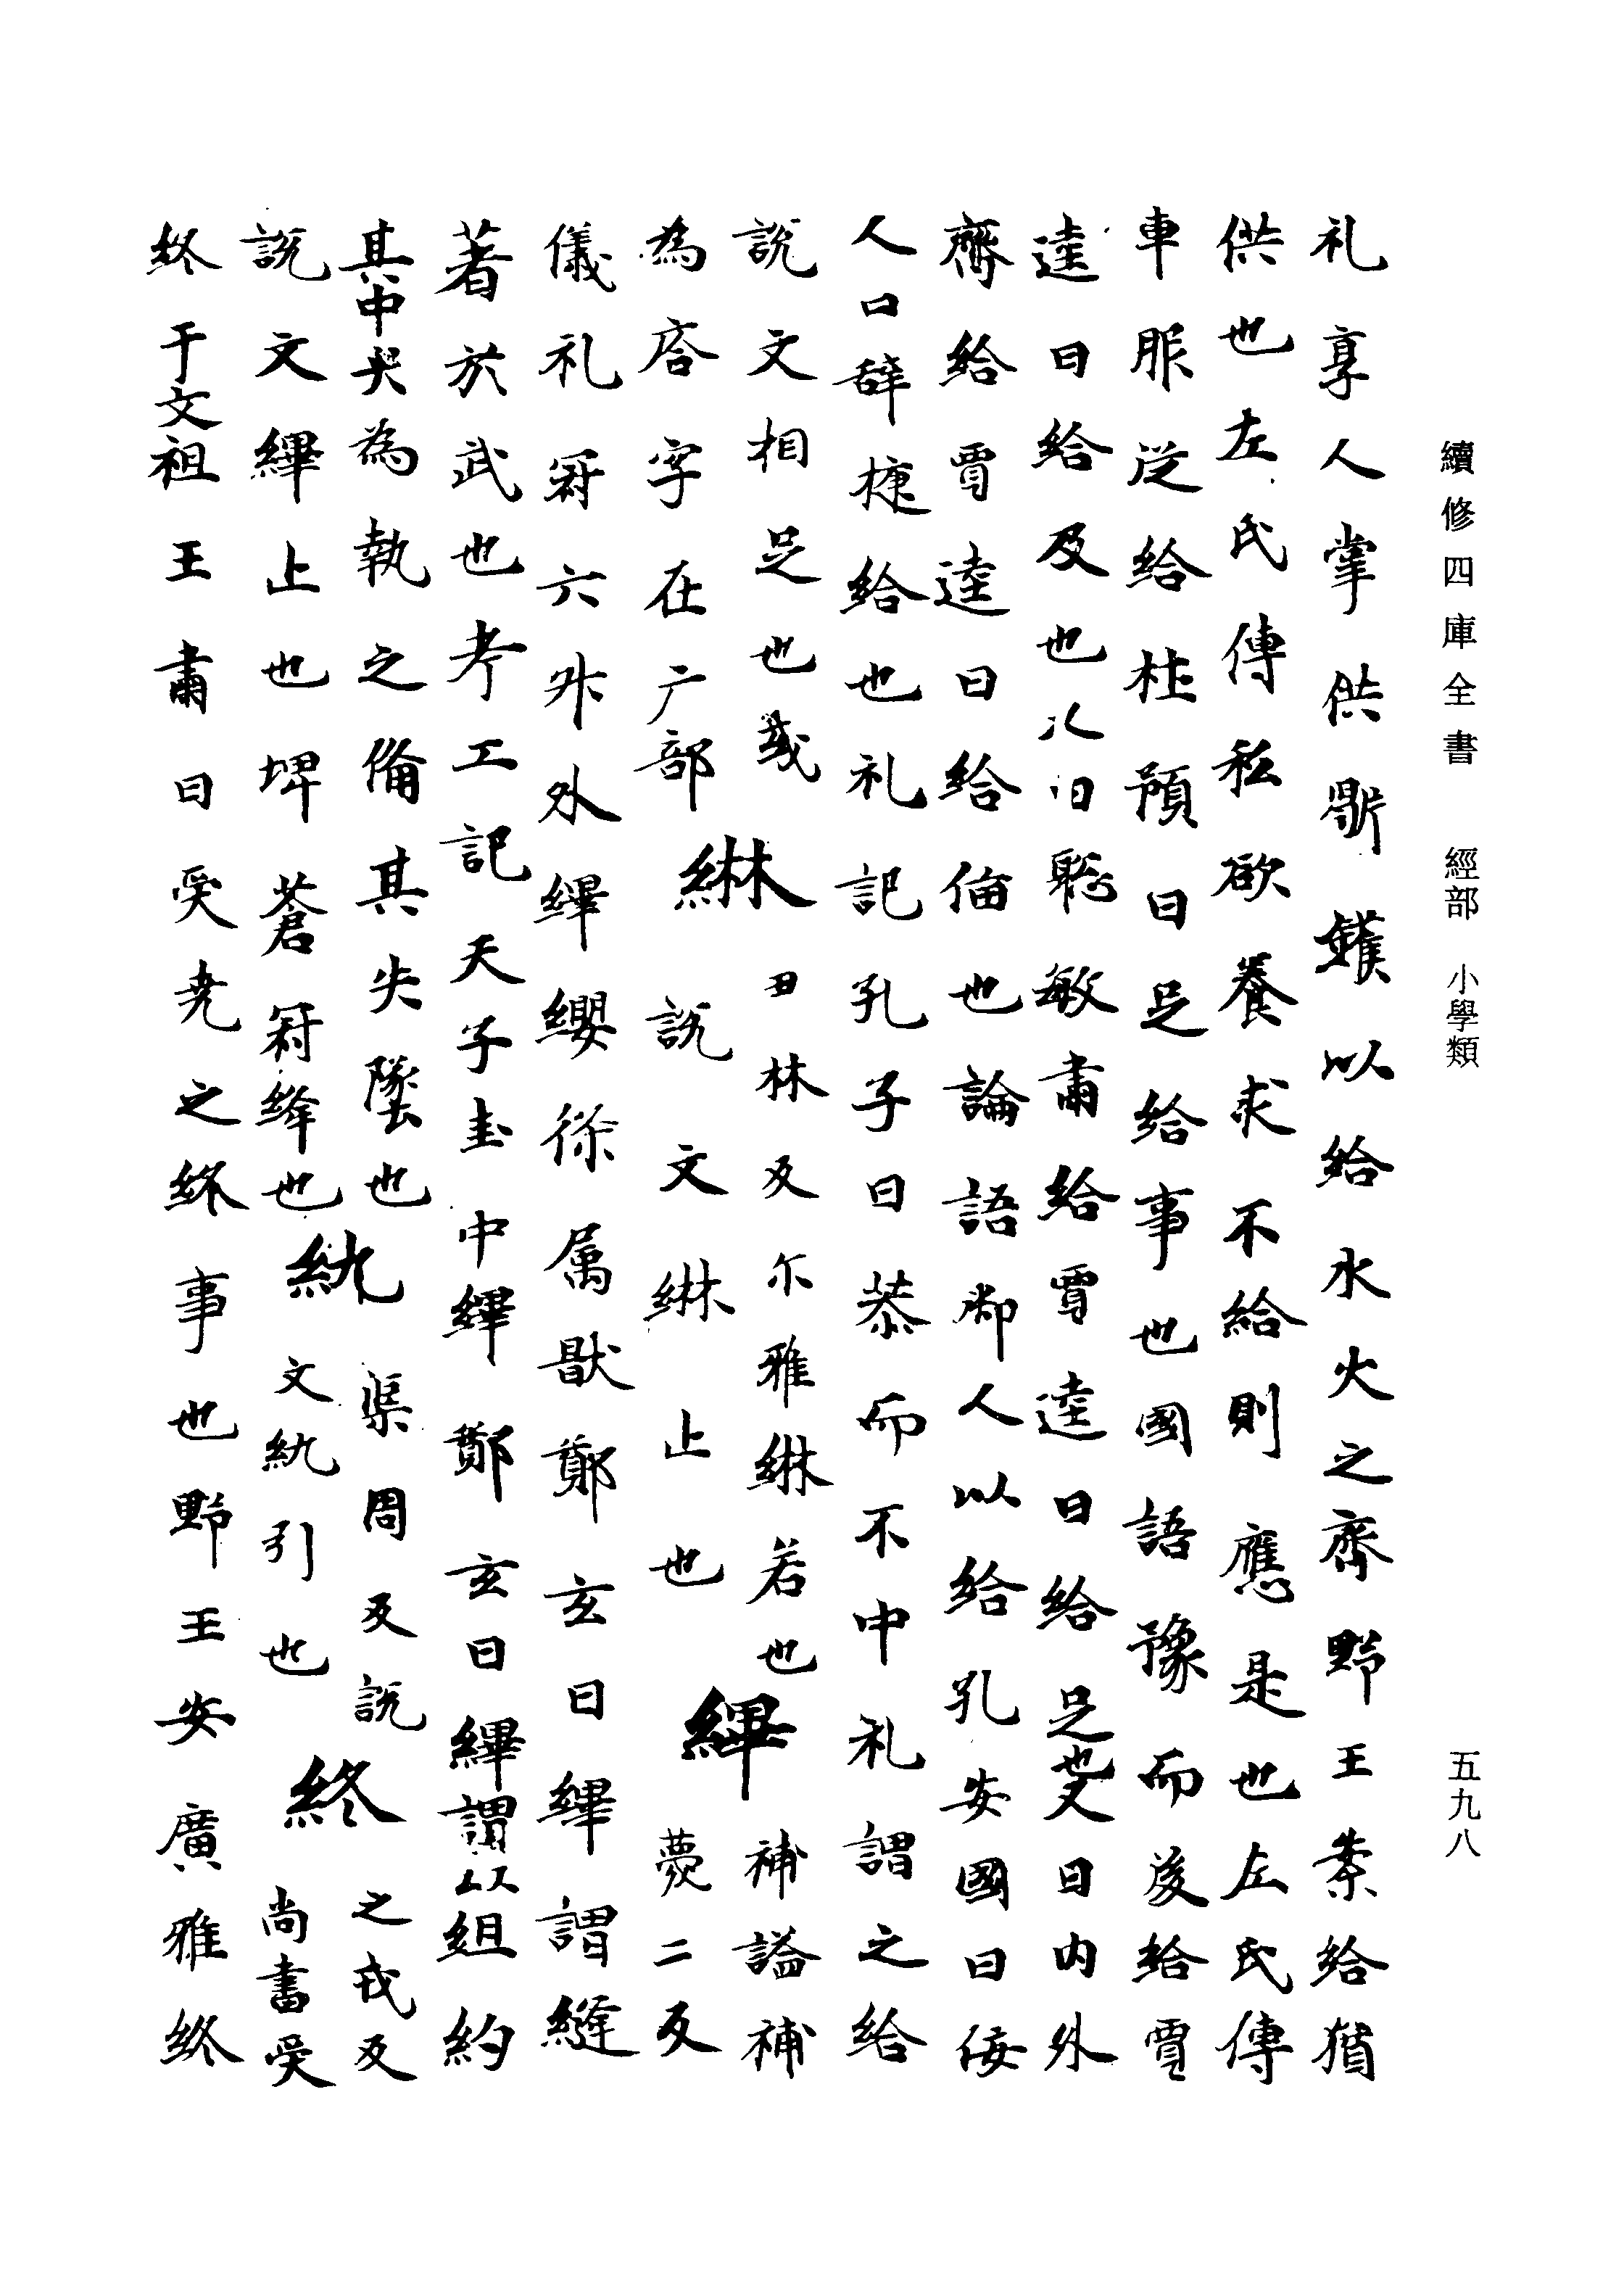 續修四庫全書 經部 小學類
五九八
礼享人掌供鼎鑊以給水火之齊野王案給猶
供也左氏傳私欲養求不給則應是也左氏傳
車服從給杜預曰足給事也國語豫而後給賈
逵曰給及也又曰聡敏肅給賈逵曰給足也又曰內外
齊給賈逵曰給俻也論語御人以給孔安國曰佞
人口辞捷給也礼記孔子曰恭而不中礼謂之給
說文相足也或
為㕉字在广部
綝
丑林反尔雅綝若也
說文綝止也
縪
補謐補
蕟二反
儀礼冠六升外縪纓條属猒鄭玄曰縪謂縫
著於武也考工記天子圭中縪鄭玄曰縪謂以組約
其中央為執之俻其失墜也
說文縪止也埤蒼冠縫也
紈
渠周反說
文紈引也
終
之戎反
尚書受
終于文祖王肅曰受尭之終事也野王安廣雅終